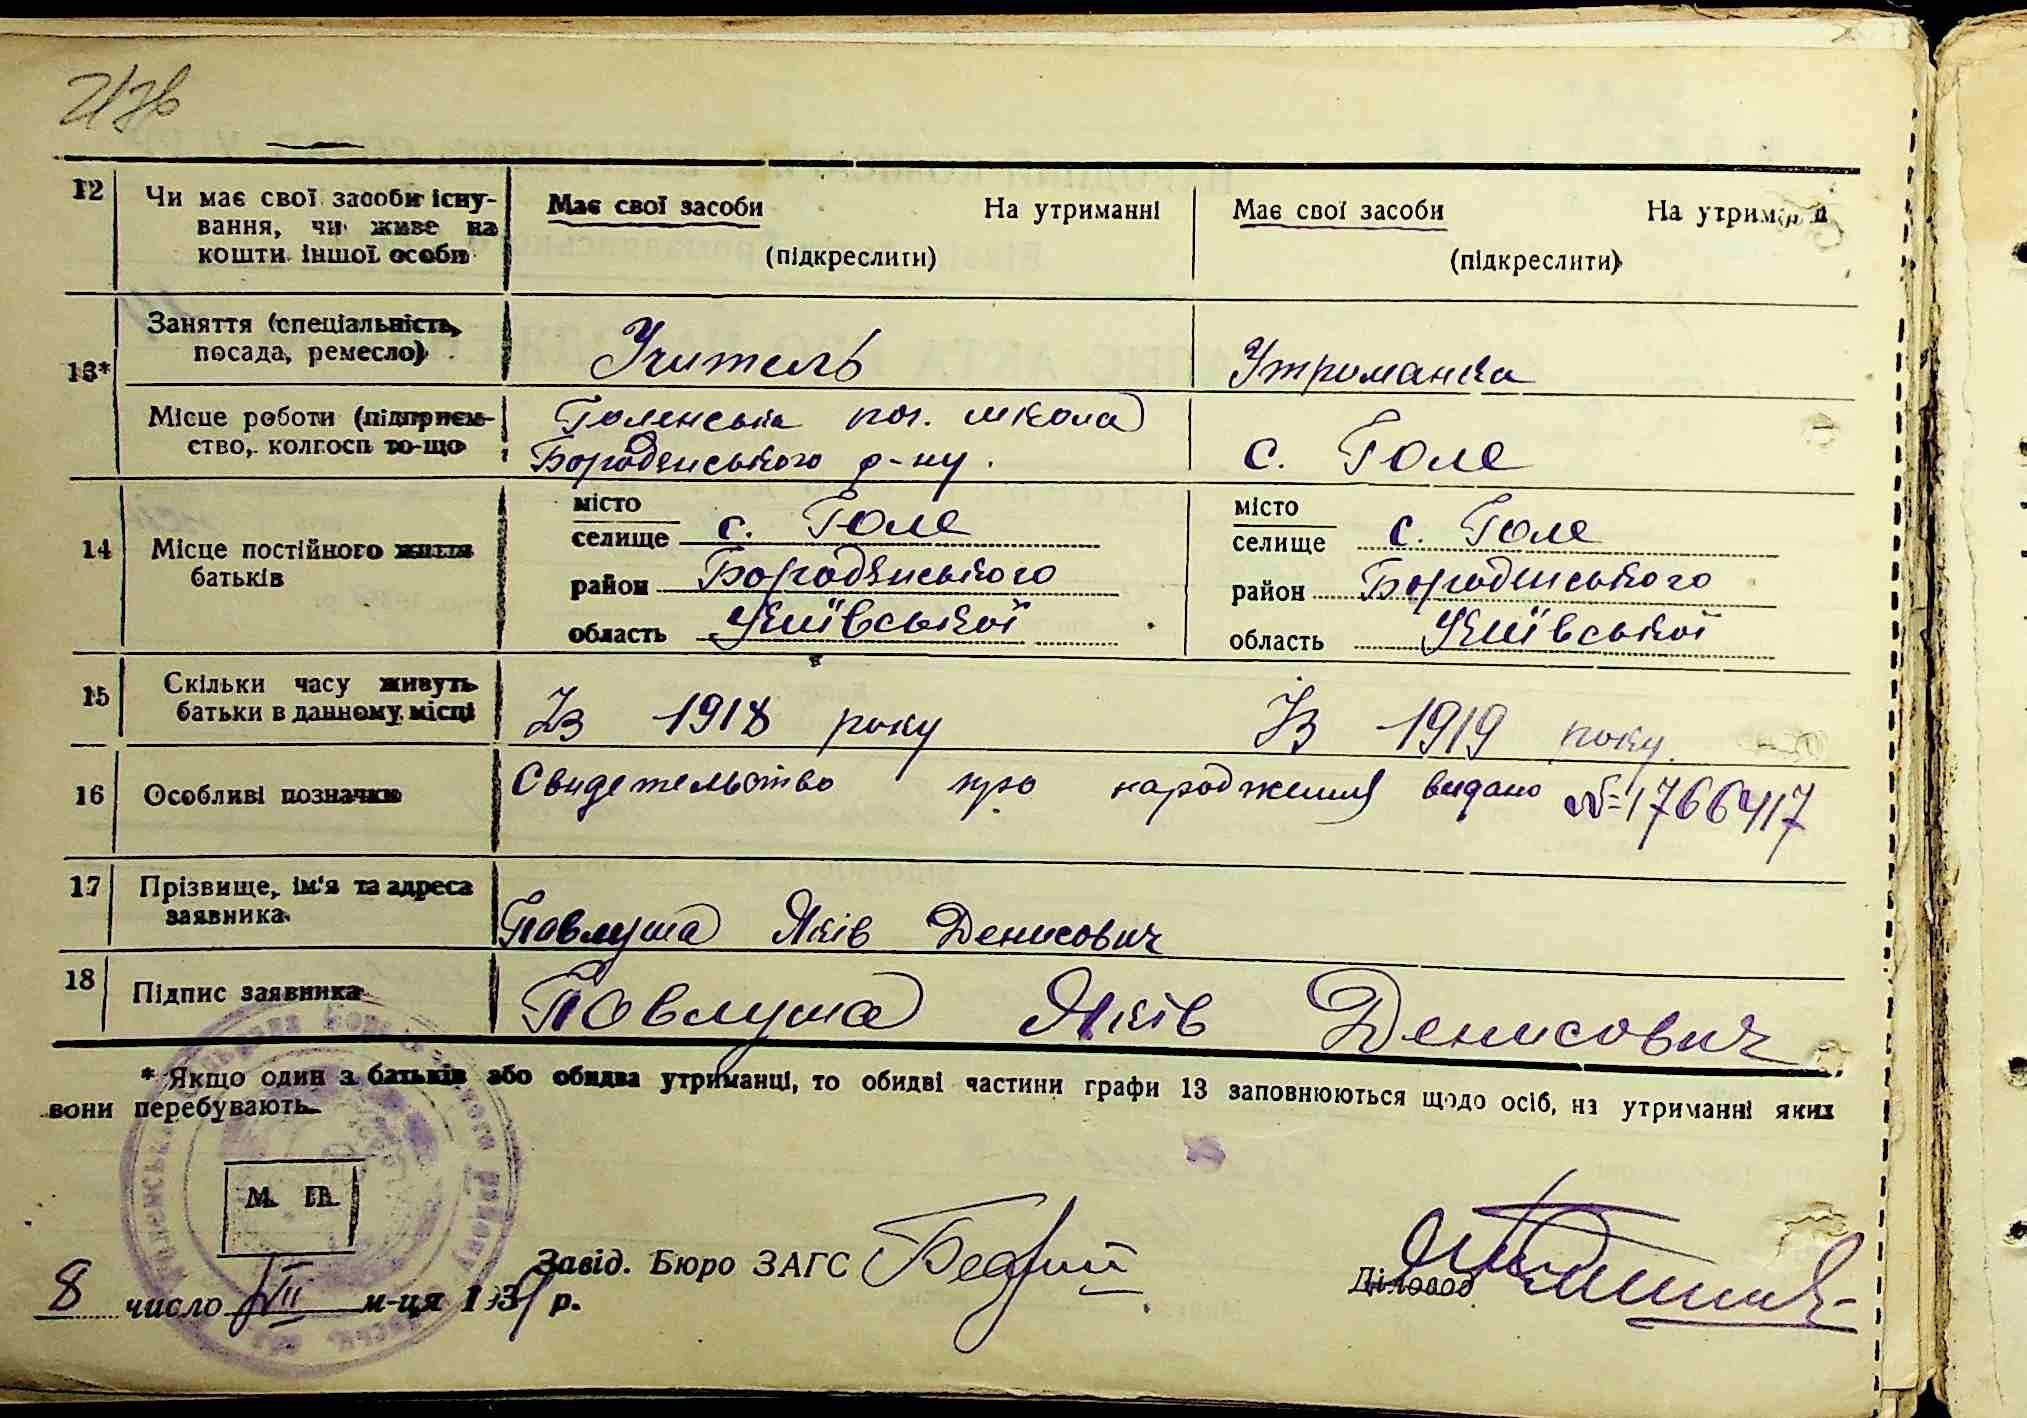 12
Чи має свої засоби існу-
вання, чи живе на
кошти іншої особи
Має свої засоби На утриманні
(підкреслити)
Має свої засоби На утриманні
(підкреслити)
13*
Заняття (спеціальність,
посада, ремесло)
Учитель
Утриманка
Місце роботи (підприєм-
ство, колгосп то-що
Голенська поч. школа
Бородянського р-ну.
с. Голе
14
Місце постійного життя
батьків
місто
селище с. Голе
район Бородянського
область Київської
місто
селище с. Голе
район Бородянського
область Київської
15
Скільки часу живуть
батьки в данному місці
Із 1918 року
Із 1919 року.
16
Особливі позначки
Свидетельство про народження видано №=1766417
17
Прізвище, ім'я та адреса
заявника
Павлуша Яків Денисович
18
Підпис заявника
Павлуша Яків Денисович
* Якщо один з батьків або обидва утриманці, то обидві частини графи 13 заповнюються щодо осіб, на утриманні яких
вони перебувають.
М. П.
Завід. Бюро ЗАГС
Діловод
8 число VII м-ця 193 р.